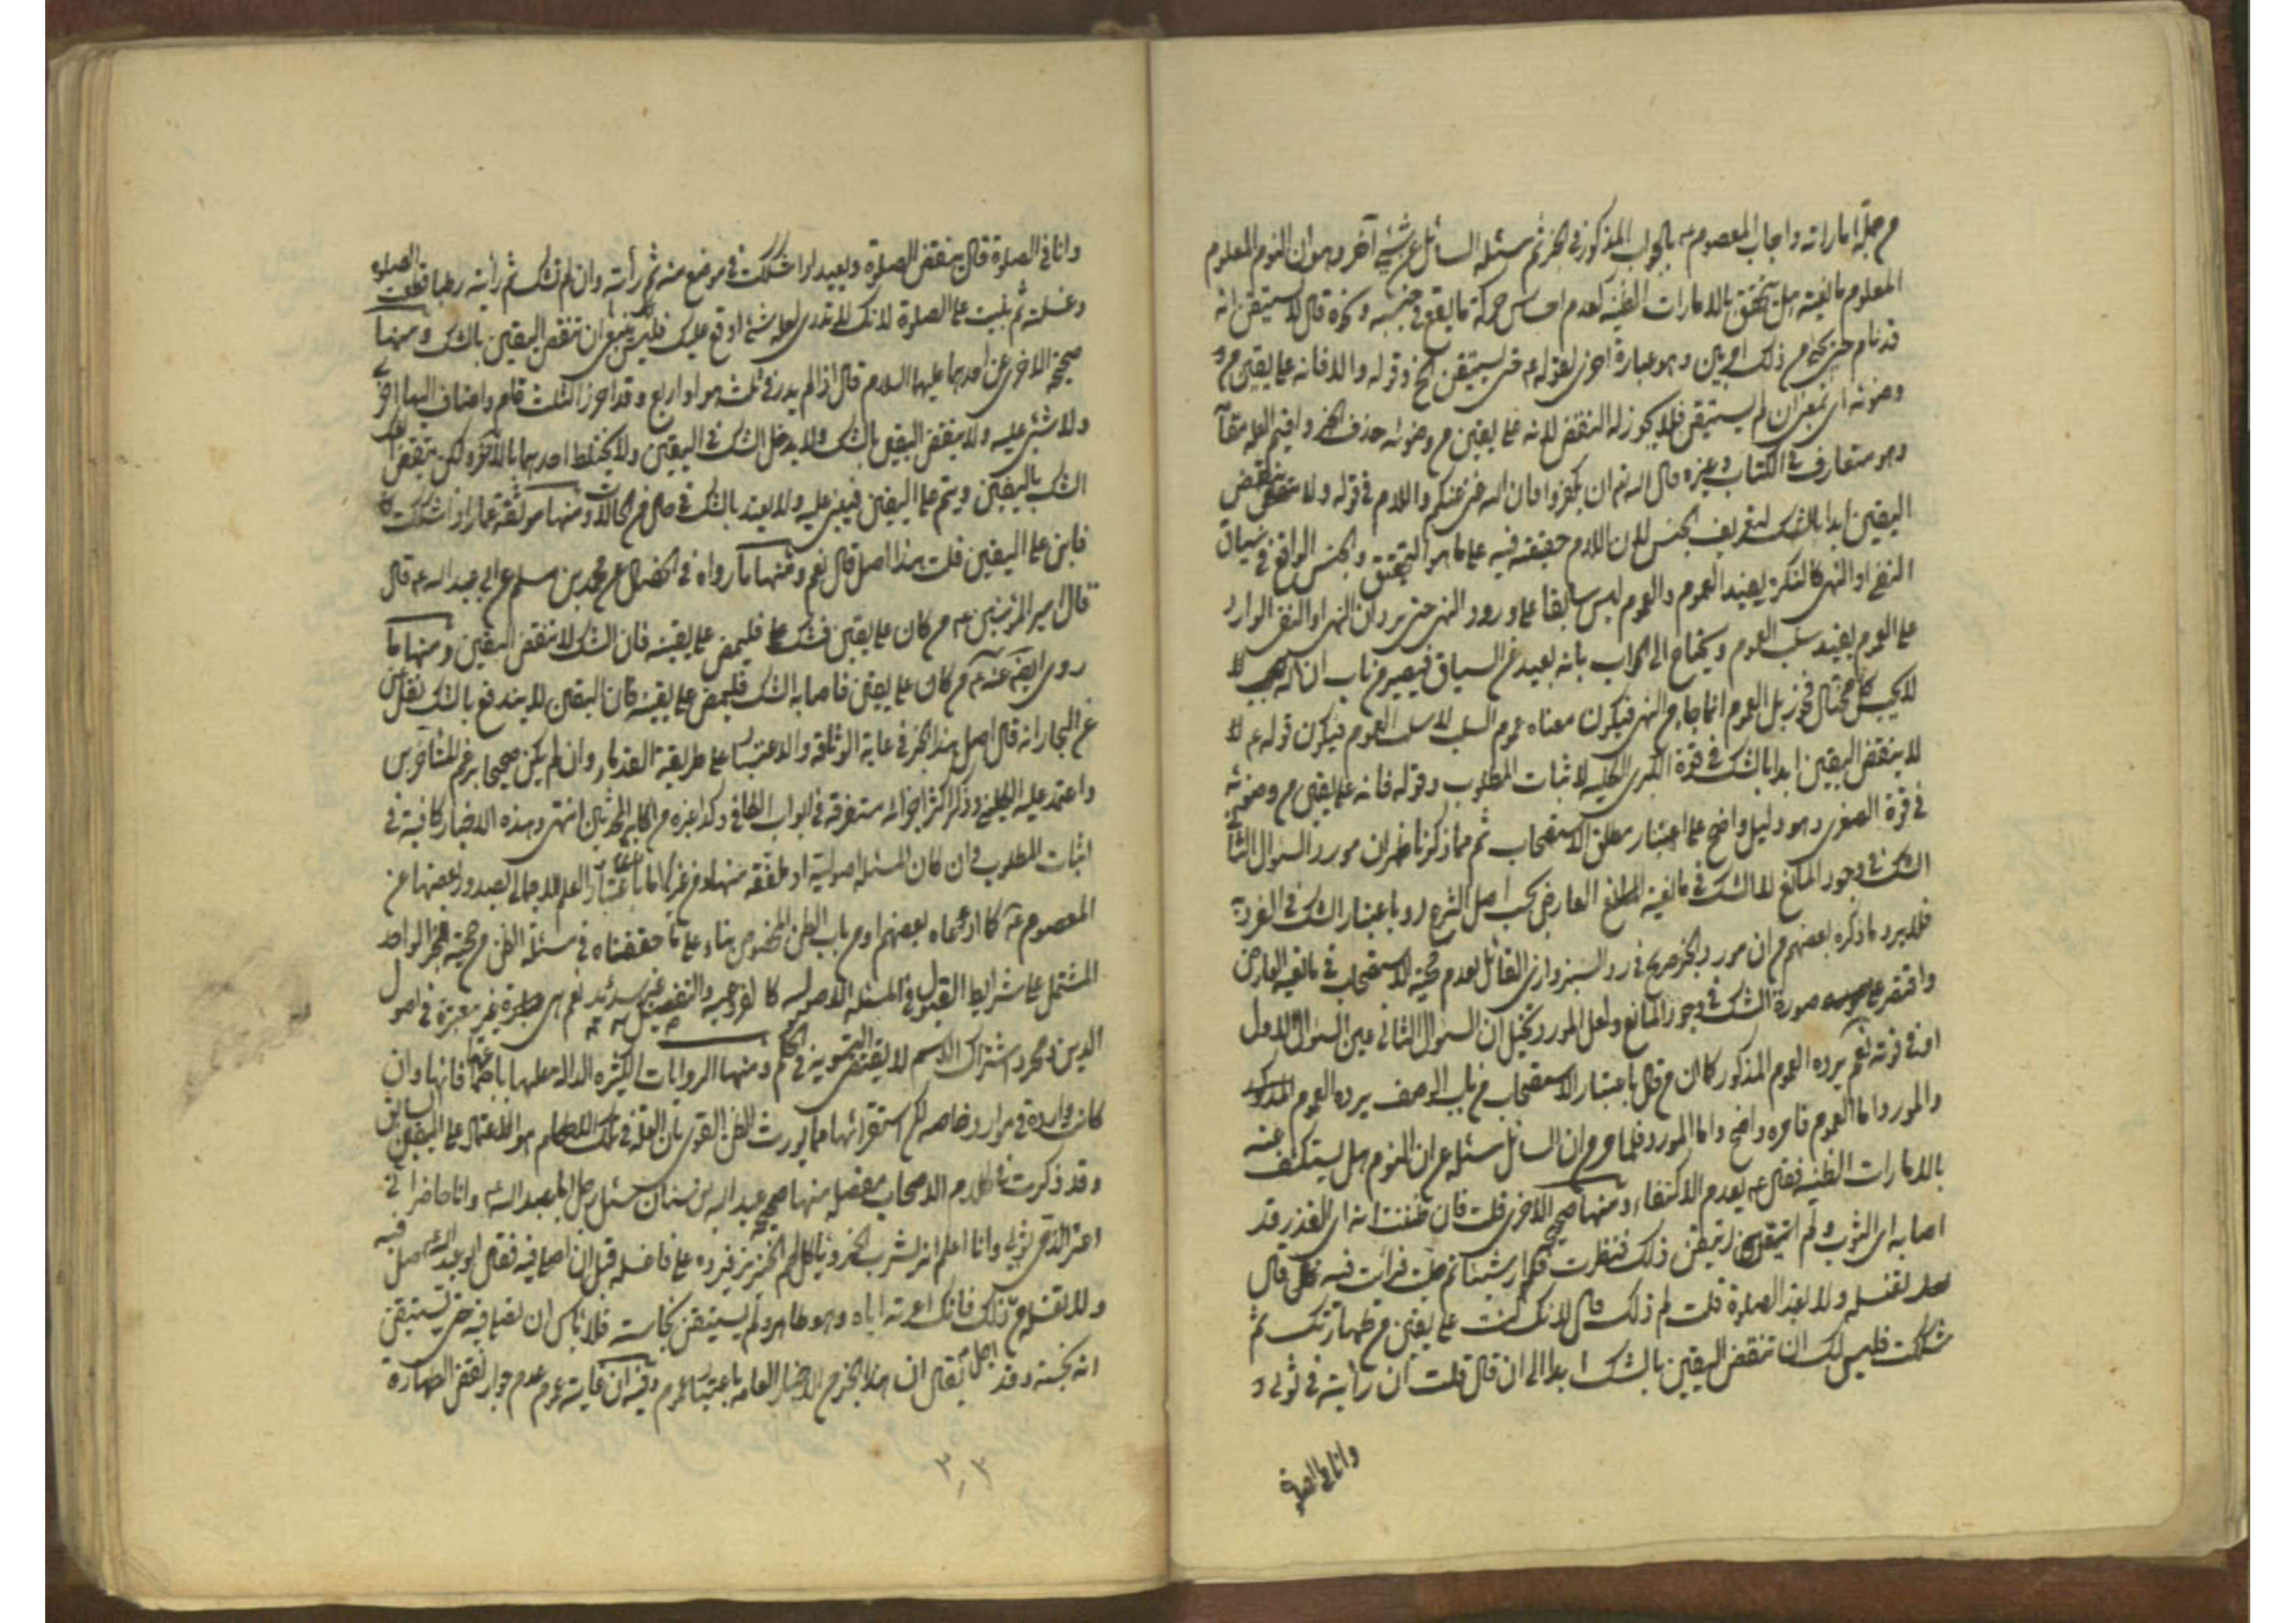 من جملة اماراته واجاب المعصوم ع بالجواب المذكور في الخبر ثم سئله السائل عن شيء آخر وهو ان النوم المعلوم
المعلوم مانعيته هل يتحقق بالامارات الظنية كعدم احساس حركة ما يقع في جنبه ونحوه قال لا يستيقن انه
قد نام حتى يجئ من ذلك امر بين وهو عبارة اخرى لقوله ع حتى يستيقن الخ وقوله والا فانه على يقين من و
وضوئه اي بمعنى ان لم يستيقن فلا يجوز له النقض لانه على يقين من وضوئه حذف الجزاء واقيم العلة مقامه
وهو متعارف في الكتاب وغيره قال الله تعم ان تكفروا فان الله غني عنكم واللام في قوله ولا ينقض
اليقين ابدا بالشك لتعريف الجنس لان اللام حقيقة فيه على ما هو التحقيق والجنس الواقع في سياق
النفي او النهي كالنكرة يفيد العموم والعموم ليس سابقا على ورود النهي حتى يرد ان النهي او النفي الوارد
على العموم يفيد سلب العموم ويحتاج الى الجواب بانه بعيد عن السياق فيصير من باب ان الله لا
لا يحب كل مختال فخور بل العموم انما جاء من النهي فيكون معناه عموم السلب لا سلب العموم فيكون قوله ع لا
لا ينقض اليقين ابدا بالشك في قوة الكبرى الكلية لاثبات المطلوب وقوله فانه على يقين من وضوئه
في قوة الصغرى وهو دليل واضح على اعتبار مطلق الاستصحاب ثم مما ذكرنا ظهر ان مورد السؤال الثاني
الشك في وجود المانع لا الشك في مانعية المانع العارض بحسب اصل الشرع او باعتبار الشك في الفردية
فلا يرد ما ذكره بعضهم من ان مورد الخبر صريح في رد السبزواري القائل بعدم حجية الاستصحاب في مانعية العارض
واقتصر على صورة الشك في وجود المانع ولعل المورد تخيل ان السؤال الثاني عين السؤال الاول
او في قوته نعم يرده العموم المذكور كما ان من قال باعتبار الاستصحاب من باب الوصف يرده العموم المذكور
والمورد اما العموم فامره واضح واما المورد فلما مر من ان السائل سئله عن ان النوم هل يستكشف عنه
بالامارات الظنية فقال ع بعدم الاكتفاء ومنها صحيحة الاخرى قلت فان ظننت انه اي القذر قد
اصابه اي الثوب ولم اتيقن ذلك فنظرت فلم ار شيئا ثم صليت فرأيت فيه قال
تغسله ولا تعيد الصلوة قلت لم ذلك قال لانك كنت على يقين من طهارتك ثم
شككت فليس لك ان تنقض اليقين بالشك ابدا الى ان قال قلت ان رأيته في ثوبي و
وانا في الصلوة
وانا في الصلوة قال ينقض الصلوة ويعيد اذا شككت في موضع منه ثم رأيته وان لم تشك ثم رأيته رطبا قطعت الصلوة
وغسلته ثم بنيت على الصلوة لانك لا تدري لعله شيء اوقع عليك فليس ينبغي ان تنقض اليقين بالشك ومنها
صحيحة الاخرى عن احدهما عليهما السلام قال اذا لم يدر في ثلث هو او اربع وقد احرز الثلث قام واضاف اليها اخرى
ولا شيء عليه ولا ينقض اليقين بالشك ولا يدخل الشك في اليقين ولا يختلط احدهما بالآخر ولكن ينقض الشك
الشك باليقين ويتم على اليقين فيبني عليه ولا يعتد بالشك في حال من الحالات ومنها موثقة عمار اذا شككت
فابن على اليقين قلت هذا اصل قال نعم ومنها ما رواه في الخصال عن محمد بن مسلم عن ابي عبد الله ع قال
قال امير المؤمنين ع من كان على يقين فشك فليمض على يقينه فان الشك لا ينقض اليقين ومنها ما
روى ايضا عنه ع من كان على يقين فاصابه الشك فليمض على يقينه فان اليقين لا يندفع بالشك نقل
عن البحار انه قال اصل هذا الخبر في غاية الوثاقة والاعتبار على طريقة القدماء وان لم يكن صحيحا بزعم المتأخرين
واعتمد عليه الكليني وذكر اكثر اجزائه متفرقة في ابواب الكافي وكذا غيره من اكابر المحدثين انتهى وهذه الاخبار كافية في
اثبات المطلوب وان كان المسئلة اصولية او ملفقة منها ومن غيرها اما باعتبار العلم الاجمالي بصدور بعضها عن
المعصوم ع كما ادعاه بعضهم او من باب الظن المخصوص بناء على ما حققناه في مسئلة الظن من حجية الخبر الواحد
المشتمل على شرايط القبول في المسئلة الاصولية كالفرعية والتفصيل غير سديد نعم هي غير معتبرة في اصول
الدين ومجرد اشتراك الاسم لا يقتضي التسوية في الحكم ومنها الروايات الكثيرة الدالة عليها باجتماعها فانها وان
كانت واردة في موارد خاصة لكن استقرائها مما يورث الظن القوي بان العلة في تلك الاحكام هو الاعتماد على اليقين السابق
وقد ذكرت في كلام الاصحاب مفصلة منها صحيحة عبد الله بن سنان سئل رجل ابا عبد الله ع وانا حاضر اني
اعير الذمي ثوبي وانا اعلم انه يشرب الخمر ويأكل لحم الخنزير فيرده على فاغسله قبل ان اصلي فيه فقال ابو عبد الله ع صل فيه
ولا تغسله من ذلك فانك اعرته اياه وهو طاهر ولم يستيقن نجاسته فلا بأس ان تصلي فيه حتى تستيقن
انه نجسه وقد يقال ان هذا يخرج الاخبار العامة باعتبار عموم وفيه ان غايته عموم عدم جواز نقض الطهارة